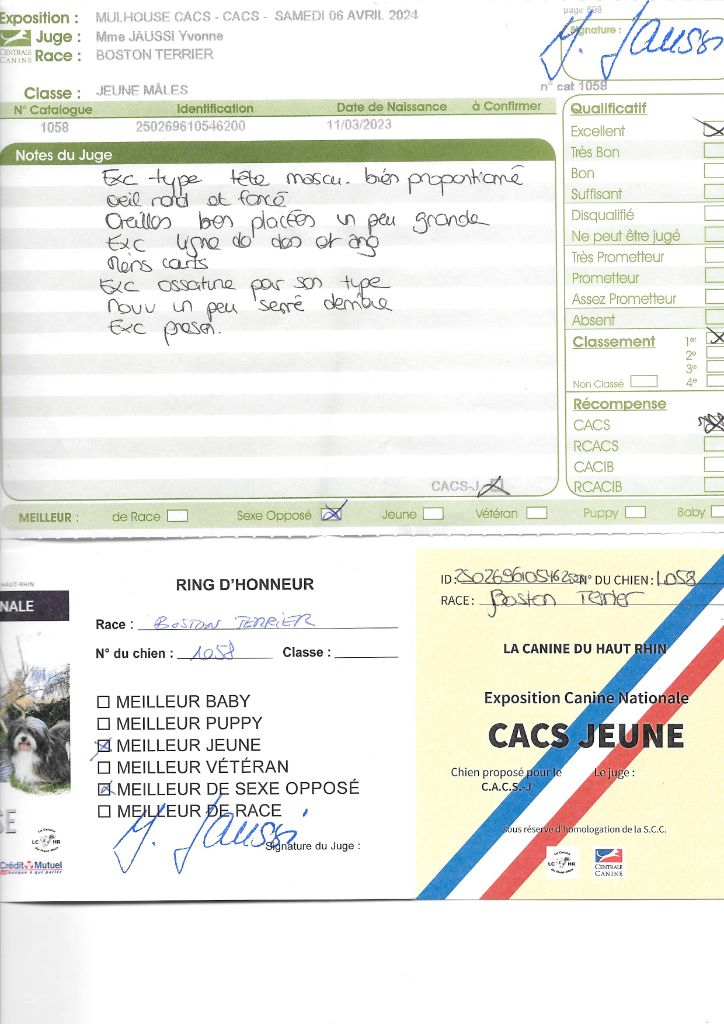 page 669
Exposition : MULHOUSE CACS - CACS - SAMEDI 06 AVRIL 2024
Juge : Mme JAUSSI Yvonne
Signature :
Y. Jaussi
CENTRALE CANINE
Race : BOSTON TERRIER
n° cat 1058
Classe : JEUNE MÂLES
N° Catalogue Identification Date de Naissance à Confirmer
1058 250269610546200 11/03/2023
Notes du Juge
Exc type tête mascu. bien proportionné
oeil rond et foncé
Oreilles bien placées un peu grande
Exc ligne de dos et ang
Reins courts
Exc ossature par son type
Mouv un peu serré derrière
Exc presen.
CACS-J
Qualificatif
Excellent
Très Bon
Bon
Suffisant
Disqualifié
Ne peut être jugé
Très Prometteur
Prometteur
Assez Prometteur
Absent
Classement 1er
2e
3e
Non Classé 4e
Récompense
CACS
RCACS
CACIB
RCACIB
MEILLEUR : de Race Sexe Opposé Jeune Vétéran Puppy Baby
HAUT-RHIN
NALE
SE
LC HR
Crédit Mutuel
RING D'HONNEUR
Race : BOSTON TERRIER
N° du chien : 1058 Classe :
MEILLEUR BABY
MEILLEUR PUPPY
MEILLEUR JEUNE
MEILLEUR VÉTÉRAN
MEILLEUR DE SEXE OPPOSÉ
MEILLEUR DE RACE
Y. Jaussi
Signature du Juge :
ID: 250269610546200 N° DU CHIEN : 1058
RACE : Boston Terrier
LA CANINE DU HAUT RHIN
Exposition Canine Nationale
CACS JEUNE
Chien proposé pour le Le juge :
C.A.C.S.-J
sous réserve d'homologation de la S.C.C.
LC HR
CENTRALE CANINE